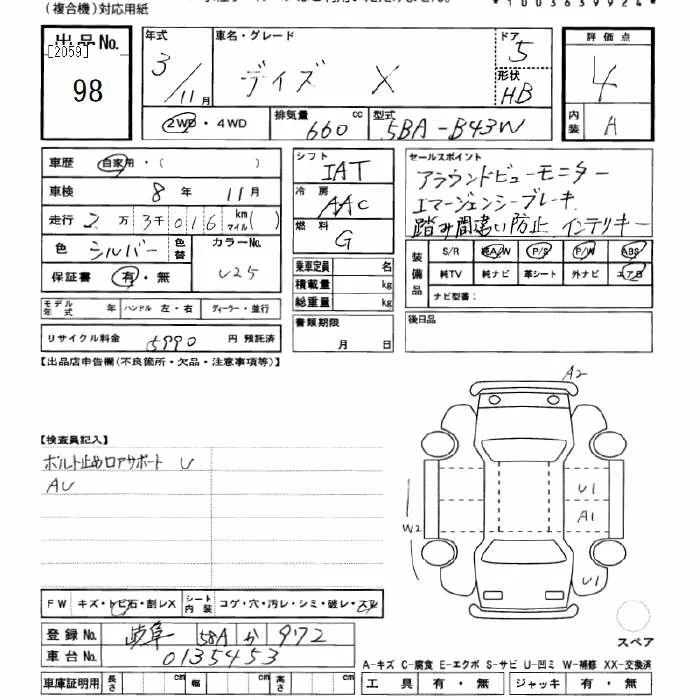 (複合機)対応用紙
*1003639924*
出品No.
[2059]
98
年式 3/11月
車名・グレード デイズ X
ドア 5
形状 HB
評価点 4
内装 A
2WD・4WD
排気量 660 cc
型式 5BA-B43W
車歴 自家用・( )
車検 8年 11月
走行 2万3千016 km マイル( )
色 シルバー 色替 カラーNo. U25
保証書 有・無
シフト IAT
冷房 AAC
燃料 G
乗車定員 名
積載量 kg
総重量 kg
書類期限 月 日
セールスポイント
アラウンドビューモニター
エマージェンシーブレーキ
踏み間違い防止 インテリキー
装備品 S/R 純A/W P/S P/W ABS
純TV 純ナビ 革シート 外ナビ エアB
ナビ型番:
後日品
モデル年式 年 ハンドル 左・右 ディーラー・並行
リサイクル料金 5990 円 預託済
【出品店申告欄(不良箇所・欠品・注意事項等)】
【検査員記入】
ボルト止めロアサポート U
AU
A2
U1
A1
W2
U1
FW キズ・トビ石・割レX シート内装 コゲ・穴・汚レ・シミ・破レ・スレ
登録No. 岐阜 58A か 972
車台No. 0135453
スペア
A-キズ C-腐食 E-エクボ S-サビ U-凹ミ W-補修 XX-交換済
車庫証明用 長さ cm 幅 cm 高さ cm
工具 有・無 ジャッキ 有・無